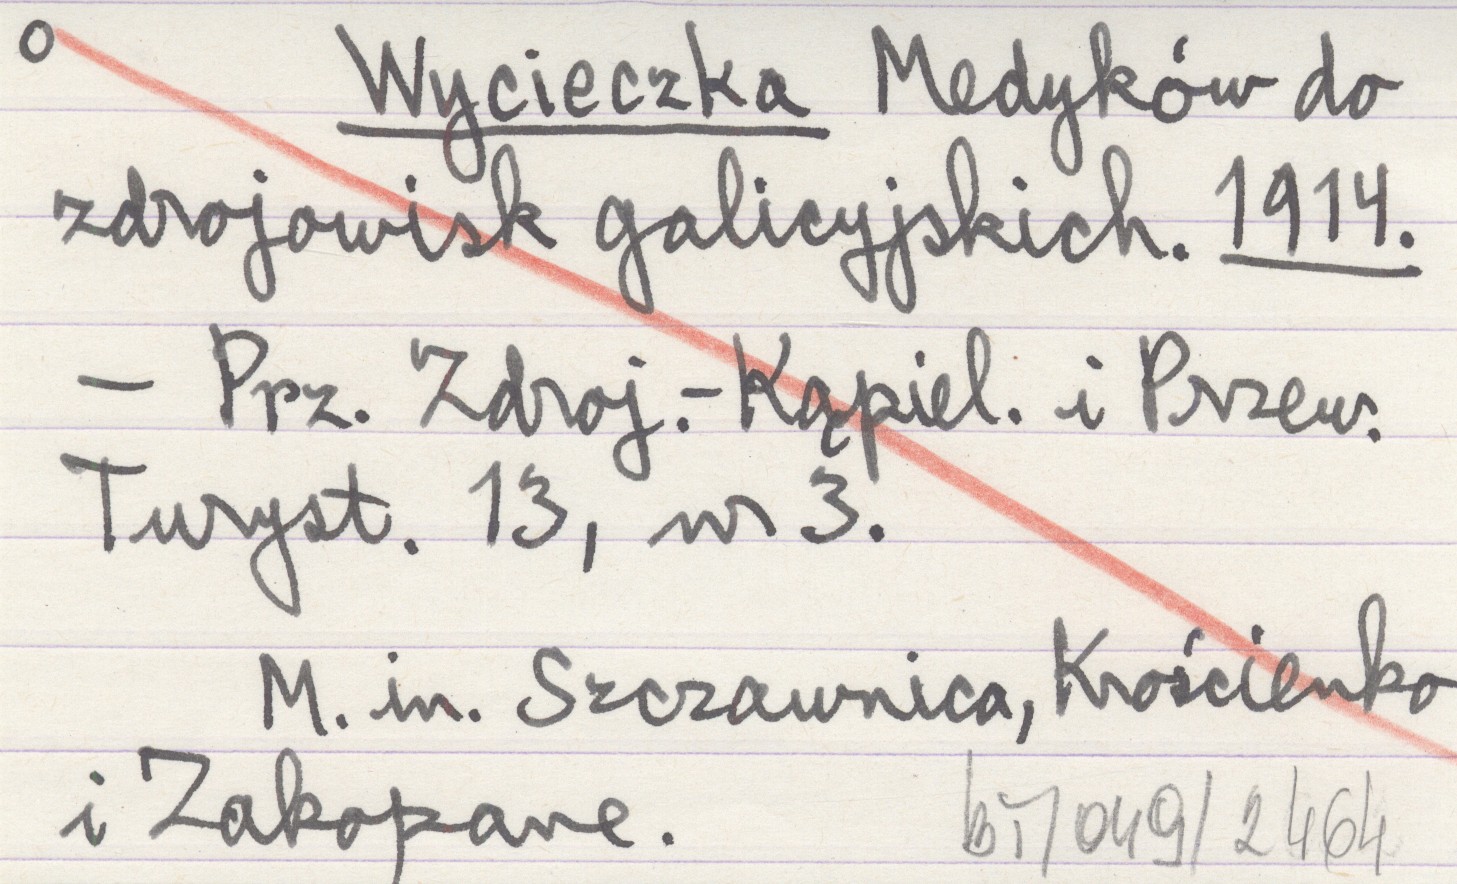 o Wycieczka Medyków do
zdrojowisk galicyjskich. 1914.
– Prz. Zdroj.-Kąpiel. i Przew.
Turyst. 13, nr 3.
M. in. Szczawnica, Krościenko
i Zakopane.
/049/2464